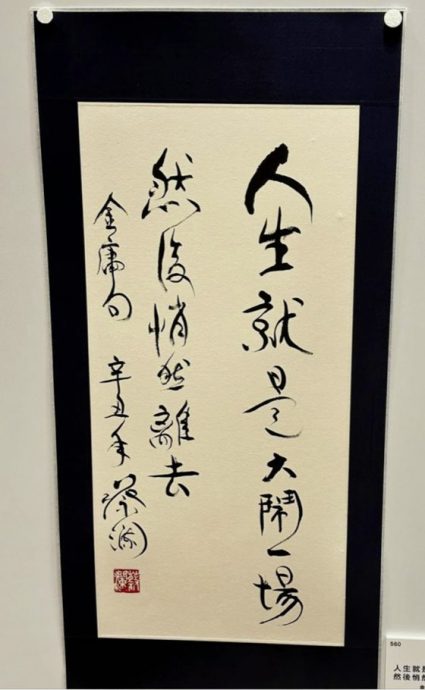 人生就是大鬧一場
然後悄然離去
金庸句 辛丑年 蔡瀾
蔡瀾
560
人生就是
然後悄然